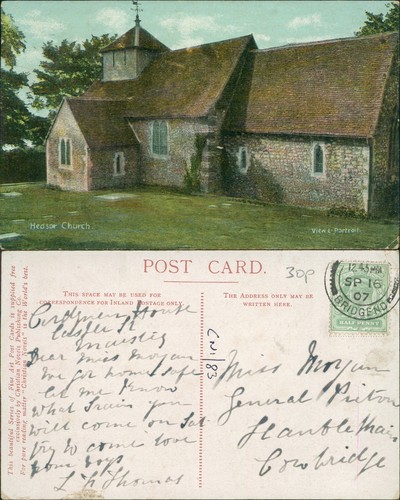 Hedsor Church
Views & Portrait
POST CARD.
30p
THIS SPACE MAY BE USED FOR
CORRESPONDENCE FOR INLAND POSTAGE ONLY.
THE ADDRESS ONLY MAY BE
WRITTEN HERE.
12.45 PM
SP 16
07
BRIDGEND
HALF PENNY
This beautiful Series of Fine Art Post Cards is supplied free
exclusively by Christian Novels Publishing Co.
For pure reading matter "Christian Novels" is the World's best.
House
Dear Miss Morgan
We got home safe
Let me know
what train you
will come on Sat
try to come love
from
Thomas
Miss Morgan
General
Cowbridge